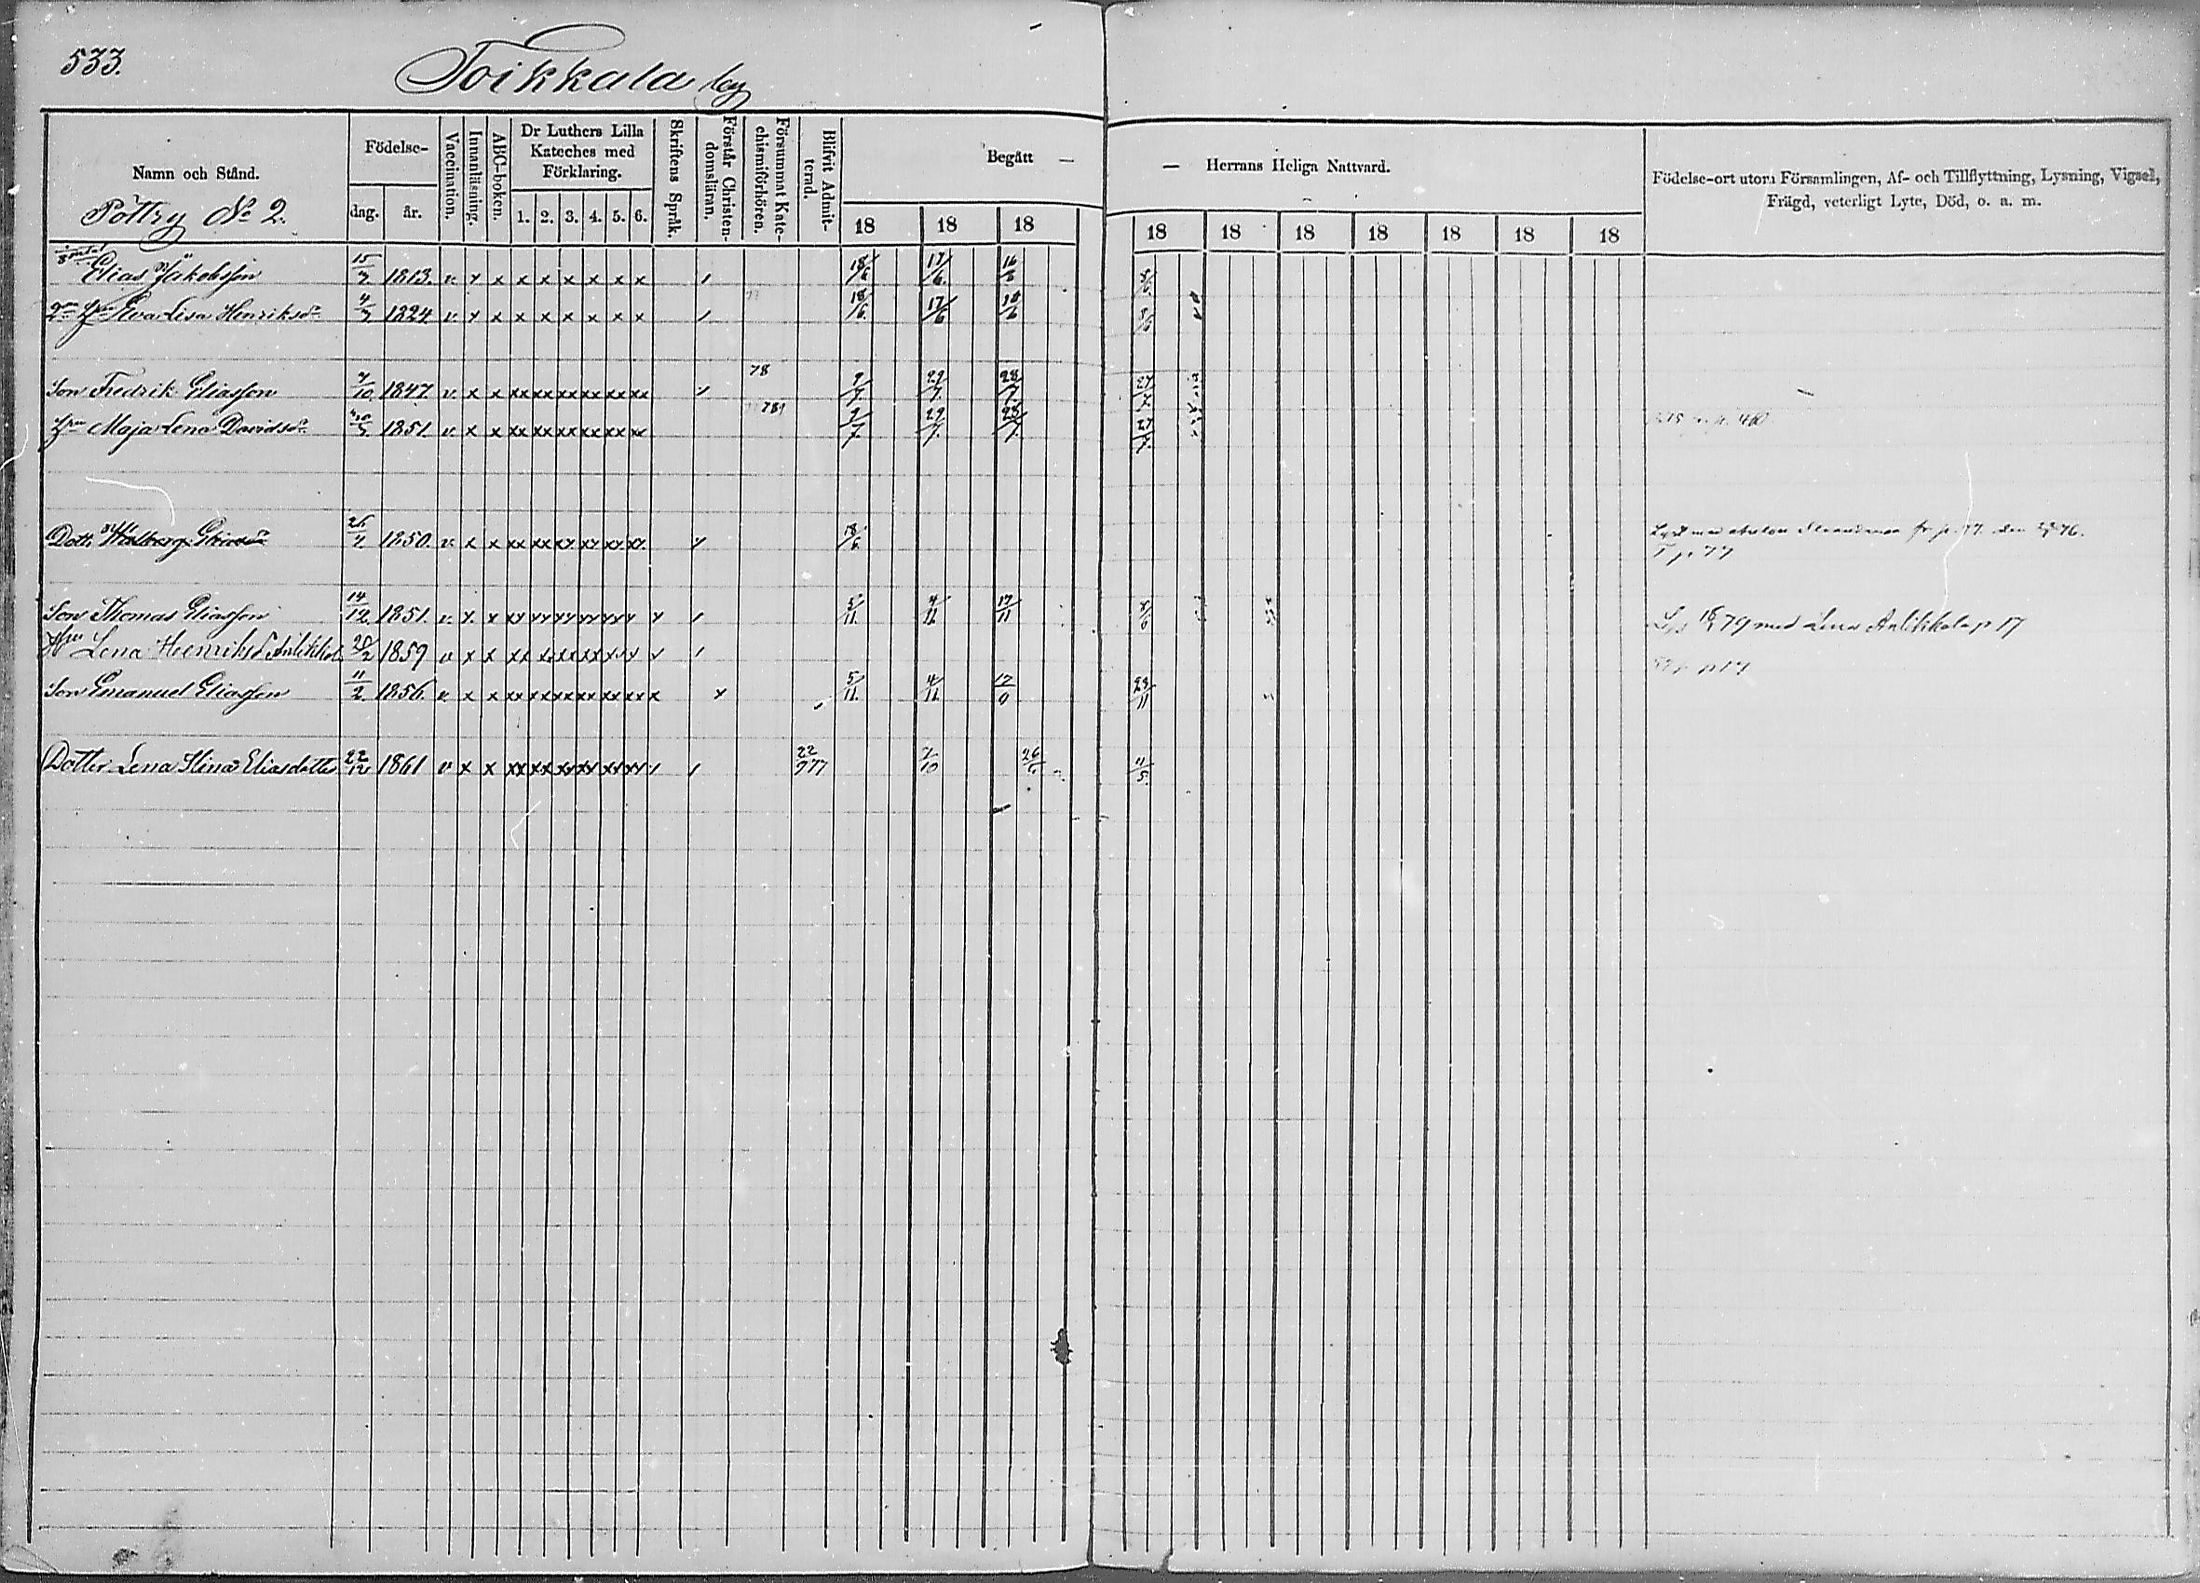 533.
Toikkala by
Namn och Stånd.
Födelse-
dag.
år.
Vaccination.
Innanläsning.
ABC-boken.
Dr Luthers Lilla
Kateches med
Förklaring.
1. 2. 3. 4. 5. 6.
Skriftens Språk.
Förstår Christen-
domsläran.
Försummat Kate-
chismiförhören.
Blifvit Admit-
terad.
Begått —
— Herrans Heliga Nattvard.
18 18 18 18 18 18 18 18 18 18
Födelse-ort utom Församlingen, Af- och Tillflyttning, Lysning, Vigsel,
Frägd, veterligt Lyte, Död, o. a. m.
Pöttry No 2.
Elias Jakobsson 15/7 1813. v. x x x x x x x x 18/6 17/6 16/6 8/6
Eva Lisa Henriksdr 4/3 1824 v. x x x x x x x x 18/6 17/6 16/6 8/6
Son Fredrik Eliasson 7/10 1847 v. x x xx xx xx xx xx xx 78 9/7 29/7 28/7 27/7
Hu Maja Lena Davidsdr 1851 v. x x xx xx xx xx xx xx 9/7 29/7 28/7 27/7
Dottr Walborg Eliasdr 26/2 1850. v. x x xx xx xx xx xx xx 18/6
T p. 77
Son Thomas Eliasson 14/12 1851. v. x. x xx xx xx xx xx xx x 5/11. 4/11. 17/11 8/6 Lyst 18/1 79 med Lena Anlikkala p 17
Hu Lena Henriksd Anlikkal 28/2 1859 v x x xx xx xx xx xx
Son Emanuel Eliasson 11/2. 1856. v. x x xx xx xx xx xx xx x x 5/11. 4/11. 17/9 23/11
Dotter Lena Stina Eliasdotter 22/12 1861 v x x xx xx xx xx xx xx 22/9 77 7/10 26/6 11/5